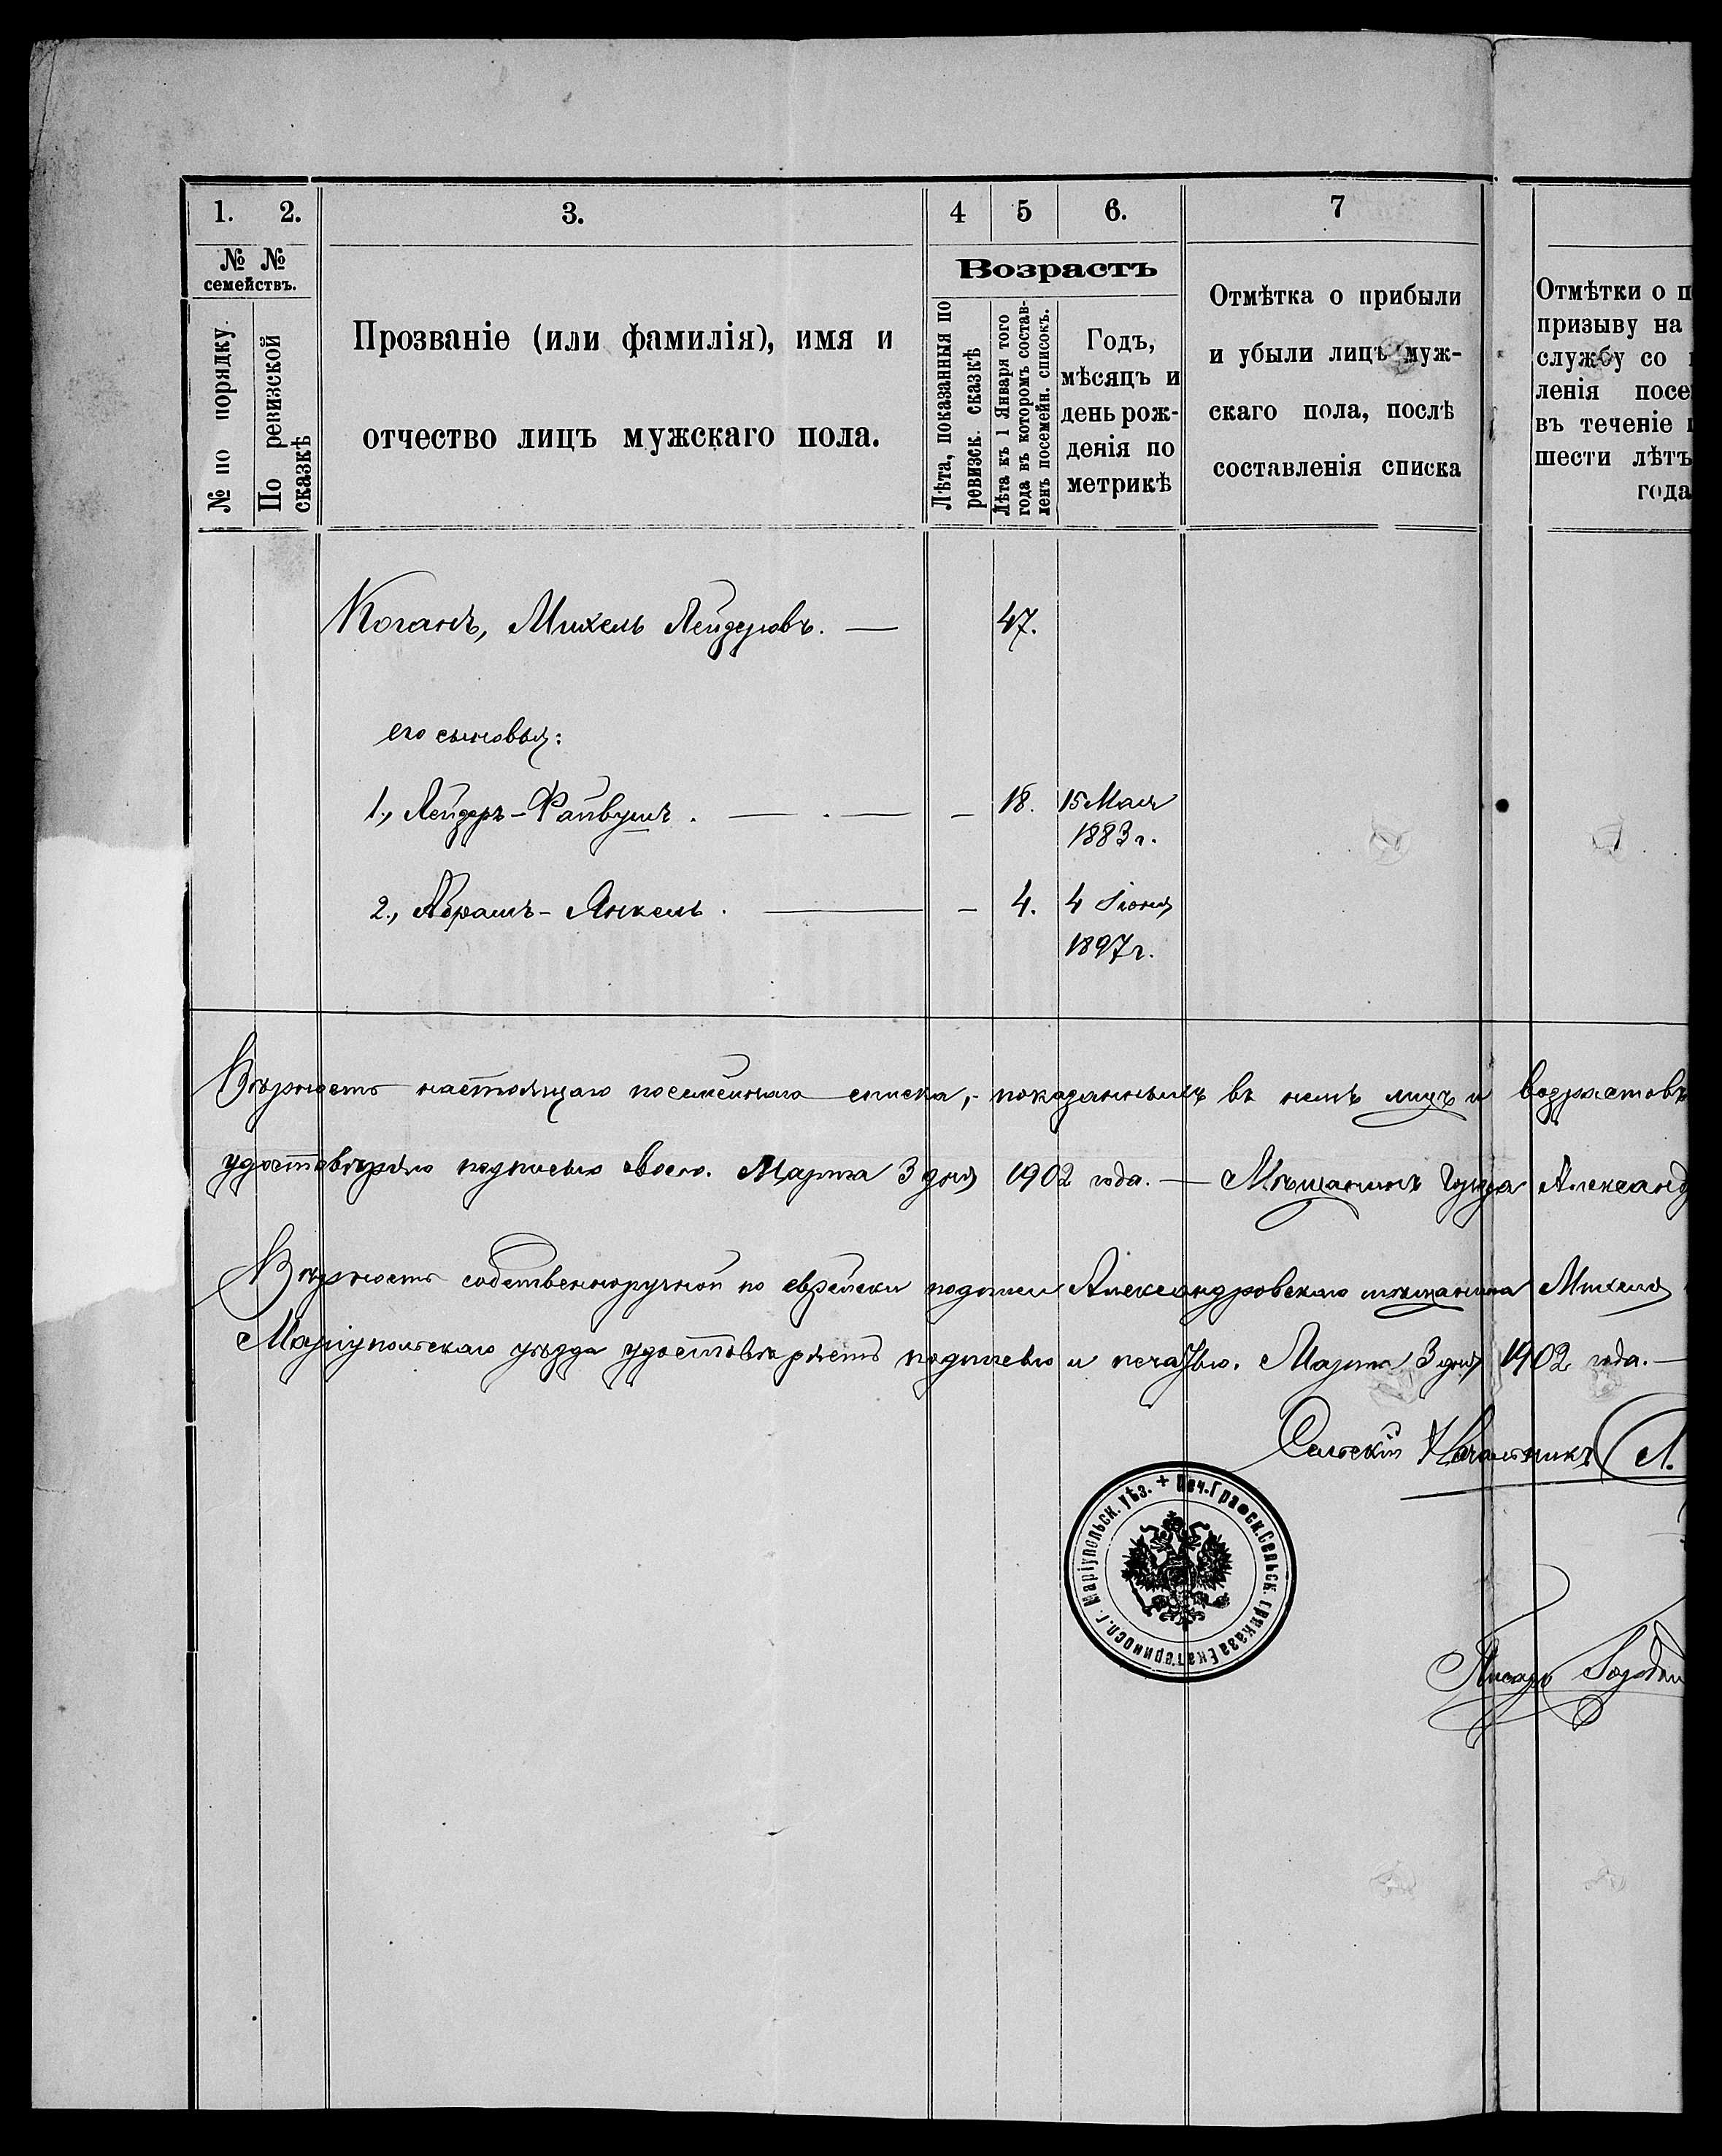 1. 2. 3. 4 5 6. 7
№ № семействъ.
№ по порядку.
По ревизской сказкѣ
Прозваніе (или фамилія), имя и
отчество лицъ мужскаго пола.
Возрастъ
Лѣта, показанныя по
ревизск. сказкѣ
Лѣта къ 1 Января того
года въ которомъ состав-
ленъ посемейн. списокъ.
Годъ,
мѣсяцъ и
день рож-
денія по
метрикѣ
Отмѣтка о прибыли
и убыли лицъ муж-
скаго пола, послѣ
составленія списка
Отмѣтки о п
призыву на
службу со
ленія посе
въ теченіе
шести лѣтъ
года
Коганъ, Михель Лейзеровъ. — 47.
его сыновья:
1., Лейзеръ-Файвушъ. — . — — 18. 15 Мая
1883 г.
2., Абрамъ-Янкель. — — 4. 4 Іюня
1897 г.
Вѣрность настоящаго посемейнаго списка, показанныхъ въ немъ лицъ и возрастовъ
удостовѣряю подписью своею. Марта 3 дня 1902 года. — Мѣщанинъ города Александ
Вѣрность собственноручной по еврейски подписи Александровскаго мѣщанина Михеля
Маріупольскаго уѣзда удостовѣряетъ подписью и печатью. Марта 3 дня 1902 года. —
Сельскій Начальникъ Л.
Печ. Графск. Сельск. приказа Екатериносл. г. Маріупольск. уѣз. +
Писарь